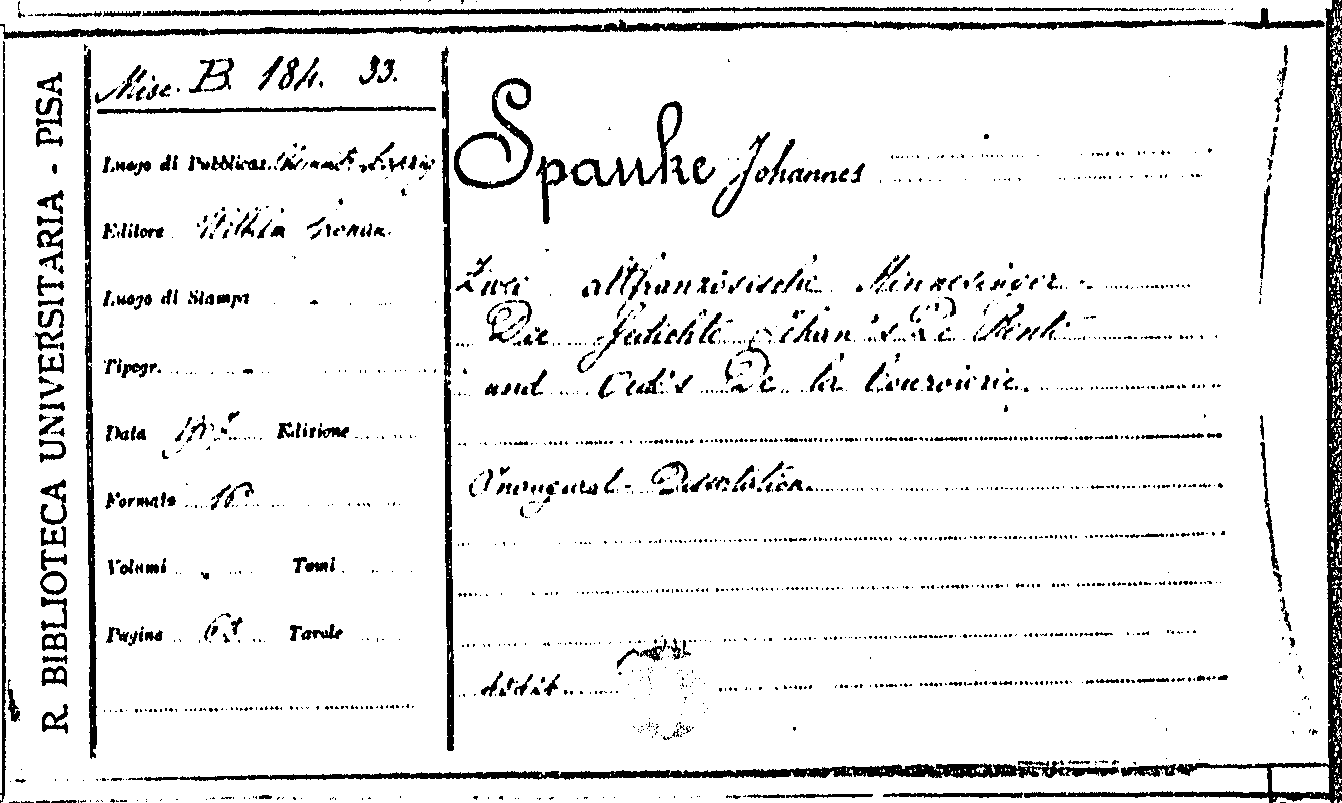 R. BIBLIOTECA UNIVERSITARIA - PISA
Misc. B. 184. 33.
Luogo di Pubblicaz.
Editore Wilhelm
Luogo di Stampa
Tipogr.
Data Edizione
Formato 16
Volumi Tomi
Pagine 65 Tavole
Spanke Johannes
Zwei altfranzösische Minnesinger.
Die Gedichte Jehan's De Renti
und Oede's De la Couroierie.
Inaugural-Dissertation.